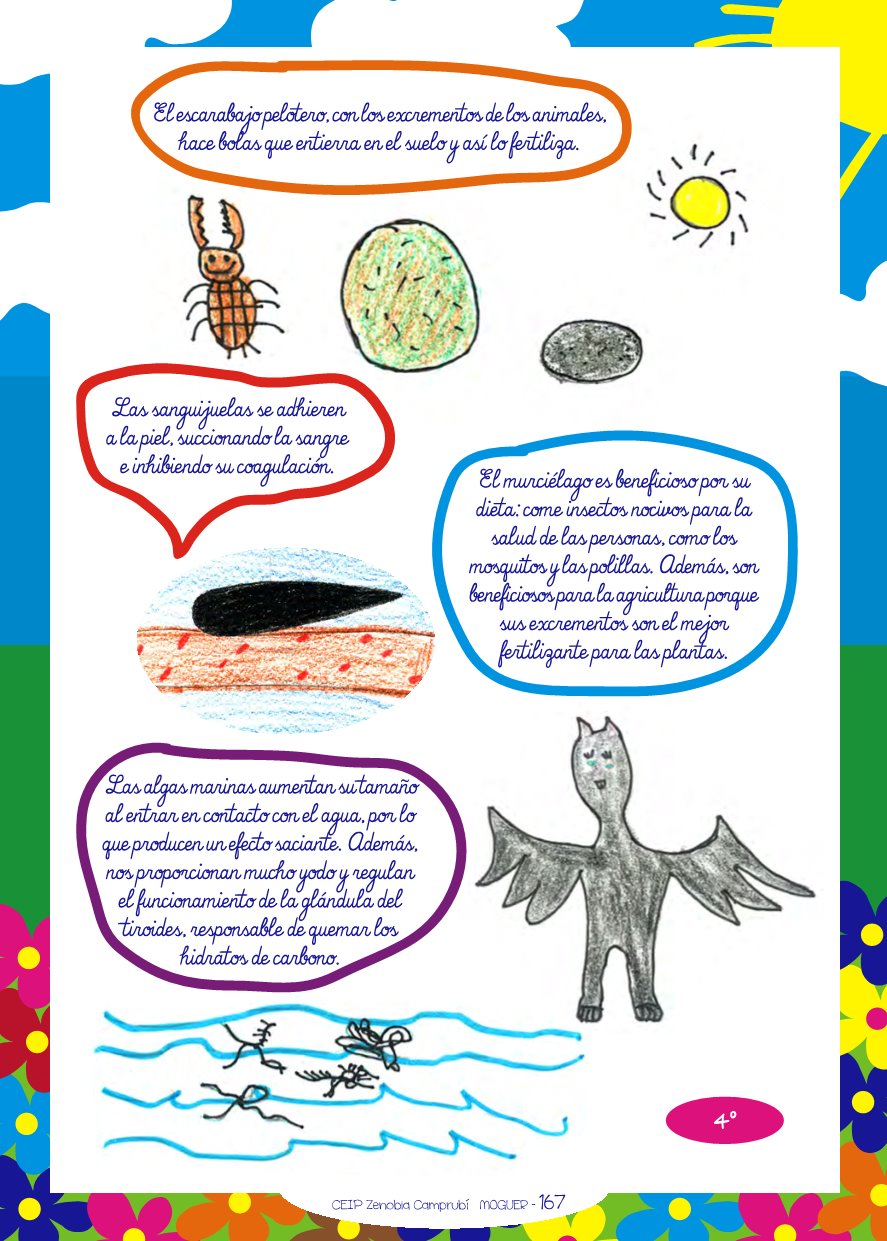 El escarabajo pelotero, con los excrementos de los animales,
hace bolas que entierra en el suelo y así lo fertiliza.
Las sanguijuelas se adhieren
a la piel, succionando la sangre
e inhibiendo su coagulación.
El murciélago es beneficioso por su
dieta: come insectos nocivos para la
salud de las personas, como los
mosquitos y las polillas. Además, son
beneficiosos para la agricultura porque
sus excrementos son el mejor
fertilizante para las plantas.
Las algas marinas aumentan su tamaño
al entrar en contacto con el agua, por lo
que producen un efecto saciante. Además,
nos proporcionan mucho yodo y regulan
el funcionamiento de la glándula del
tiroides, responsable de quemar los
hidratos de carbono.
4º
CEIP Zenobia Camprubí MOGUER - 167